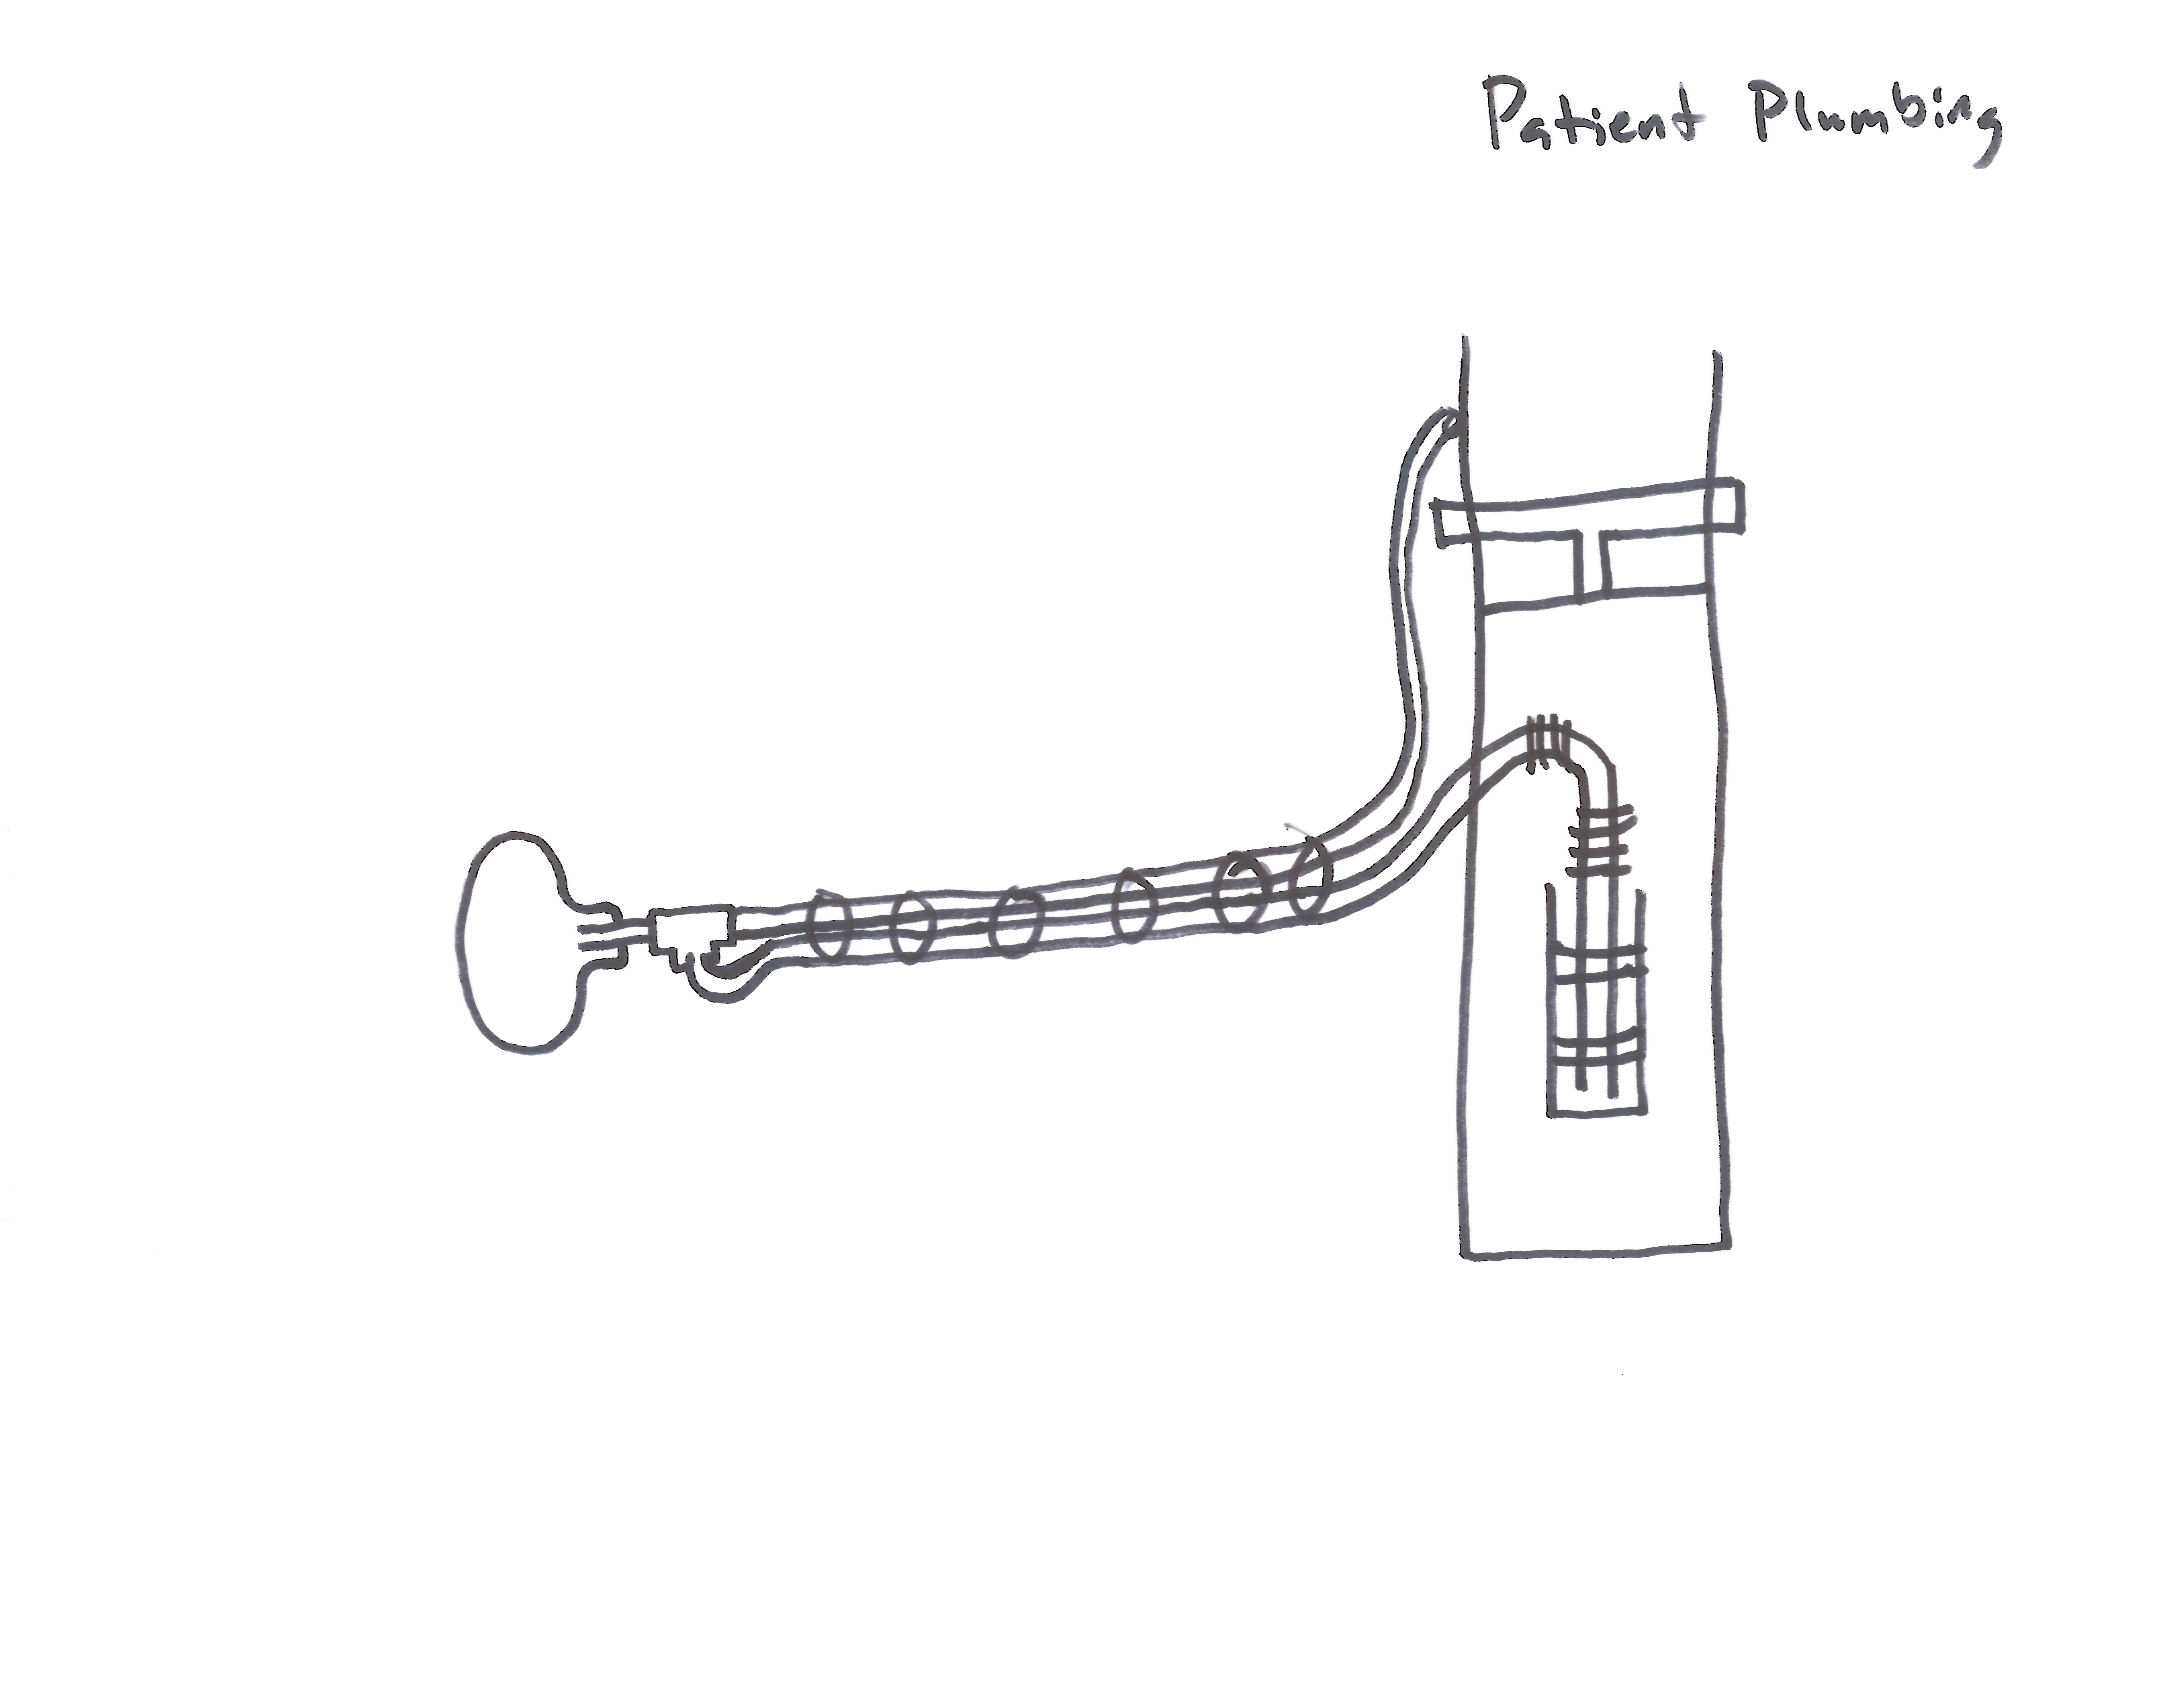 Patient Plumbing